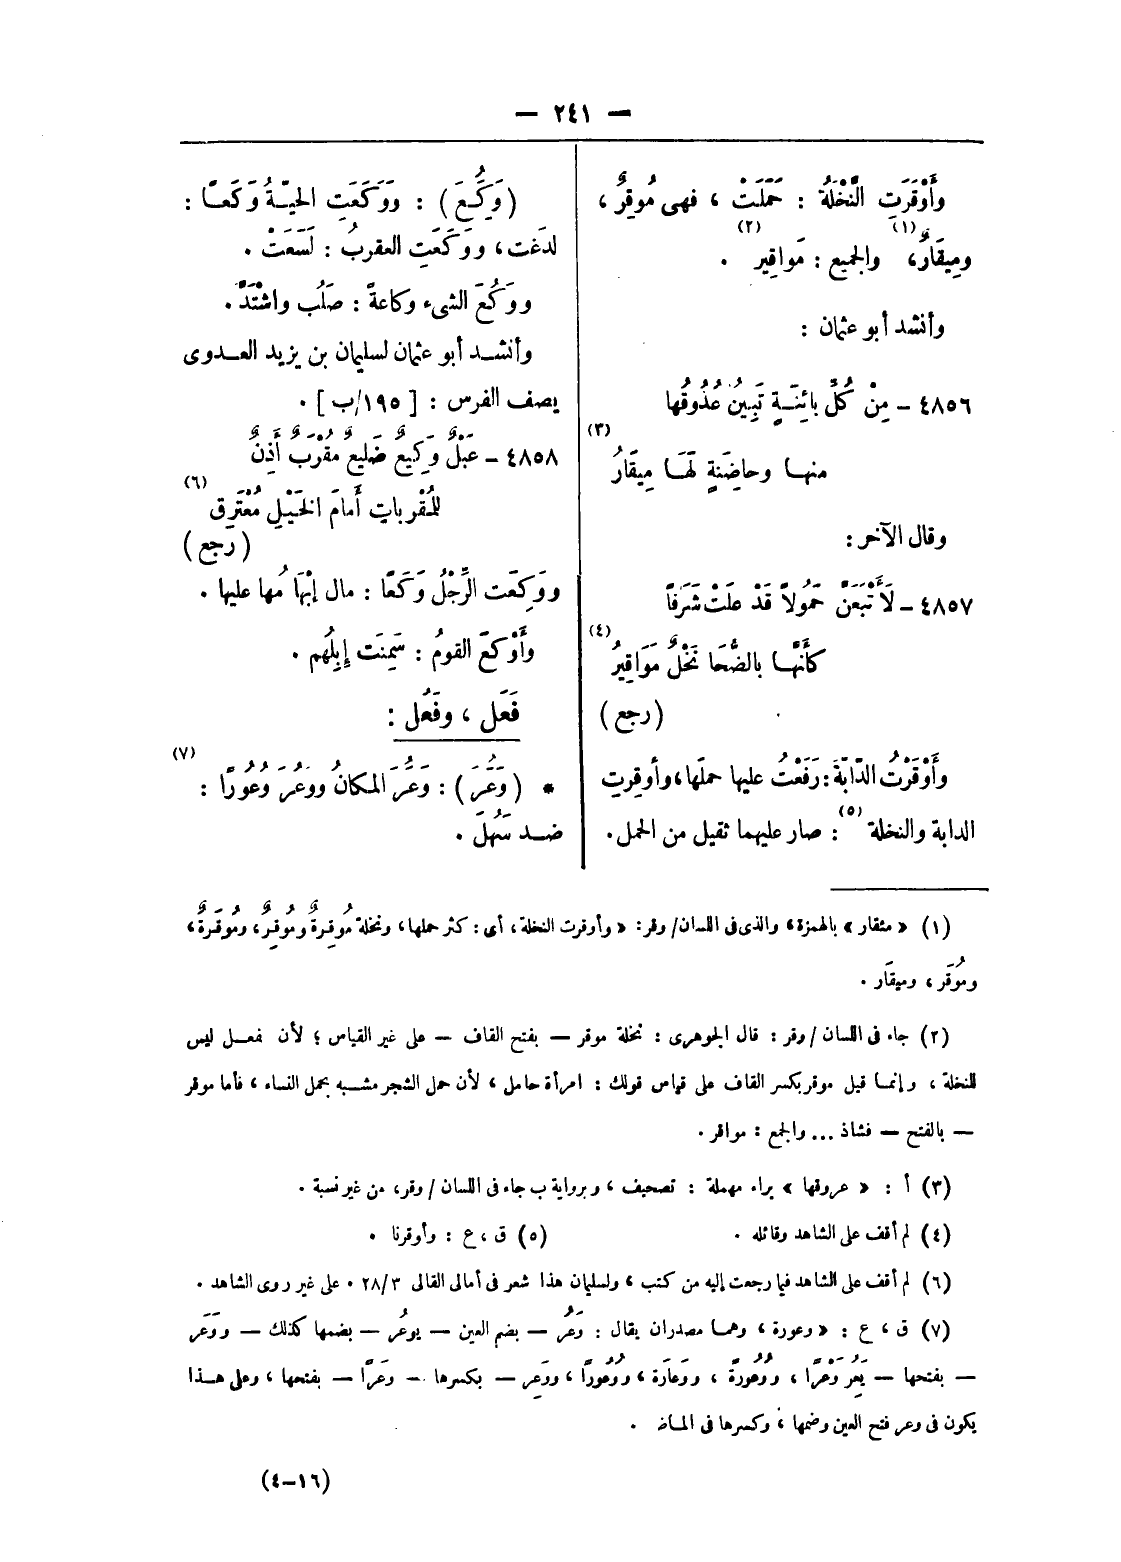 — ٢٤١ —
وأَوْقَرَتِ النَّخْلَةُ : حَمَلَتْ ، فهى مُوقِرٌ ،
ومِيقَارٌ(١)، والجميع : مَواقِير(٢) .
وأنشد أبو عثمان :
٤٨٥٦ - مِنْ كُلِّ بائِنَةٍ تَبِينُ عُذُوقُها
منها وحاضِنَةٍ لَهَا مِيقَارُ(٣)
وقال الآخر :
٤٨٥٧ - لَأَتْبَعَنَّ حَمُولاً قَدْ علَتْ شَرَفاً
كأَنَّها بالضُّحَا نَخْلٌ مَوَاقِيرُ(٤)
(رجع)
وأَوْقَرْتُ الدّابَّةَ : رَفَعْتُ عليها حملَها، وأوقِرتِ
الدابة والنخلة(٥) : صار عليهما ثقيل من الحمل.
(وَكَعَ) : ووَكَعَتِ الحيّةُ وَكَعاً :
لدَغت، ووَكَعَتِ العقربُ : لَسَعَتْ .
ووَكُعَ الشىء وكاعةً : صَلُب واشْتَدَّ .
وأنشد أبو عثمان لسليمان بن يزيد العدوى
يصف الفرس : [ ١٩٥/ب ] .
٤٨٥٨ - عَبْلٌ وَكِيعٌ ضَلِيعٌ مُقْرَبٌ أَذِنٌ
للمُقْرِباتِ أَمامَ الخَيْلِ مُعْتَرِق(٦)
(رَجع)
ووَكِعَت الرِّجْلُ وَكَعًا : مال إبْهَامُها عليها .
وأَوْكَعَ القومُ : سَمِنَت إِبِلُهم .
فَعَل ، وفَعُل :
* (وَعُرَ) : وَعَرَ المكانُ ووَعُرَ وُعُورًا(٧) :
ضد سَهُلَ .
(١) « مئقار » بالهمزة، والذى فى اللسان/ وقر: « وأوقرت النخلة، أى : كثر حملها، ونخلة مُوقِرةٌ ومُوقِرٌ، ومُوقَرةٌ،
ومُوقَر ، وميقَار .
(٢) جاء فى اللسان / وقر : قال الجوهرى : نخلة موقر — بفتح القاف — على غير القياس ؛ لأن فعل ليس
للنخلة ، وإنما قيل موقر بكسر القاف على قياس قولك : امرأة حامل ، لأن حمل الشجر مشبه بحمل النساء ، فأما موقر
— بالفتح — فشاذ ... والجمع : مواقر .
(٣) أ : « عروقها » براء مهملة : تصحيف ، وبرواية ب جاء فى اللسان / وقر، من غير نسبة .
(٤) لم أقف على الشاهد وقائله .
(٥) ق ، ع : وأوقرنا .
(٦) لم أقف على الشاهد فيما رجعت إليه من كتب ، ولسليمان هذا شعر فى أمالى القالى ٢٨/٣ . على غير روى الشاهد .
(٧) ق ، ع : « وعورة ، وهما مصدران يقال : وَعُر — بضم العين — يوعُر — بضمها كذلك — ووَعَر
— بفتحها — يَعِر وَعْرًا ، ووُعُورةً ، ووَعَارة ، ووُعُورًا ، ووَعِر — بكسرها — وَعَرًا — بفتحها ، وعلى هذا
يكون فى وعر فتح العين وضمها ، وكسرها فى الماض .
(١٦-٤)